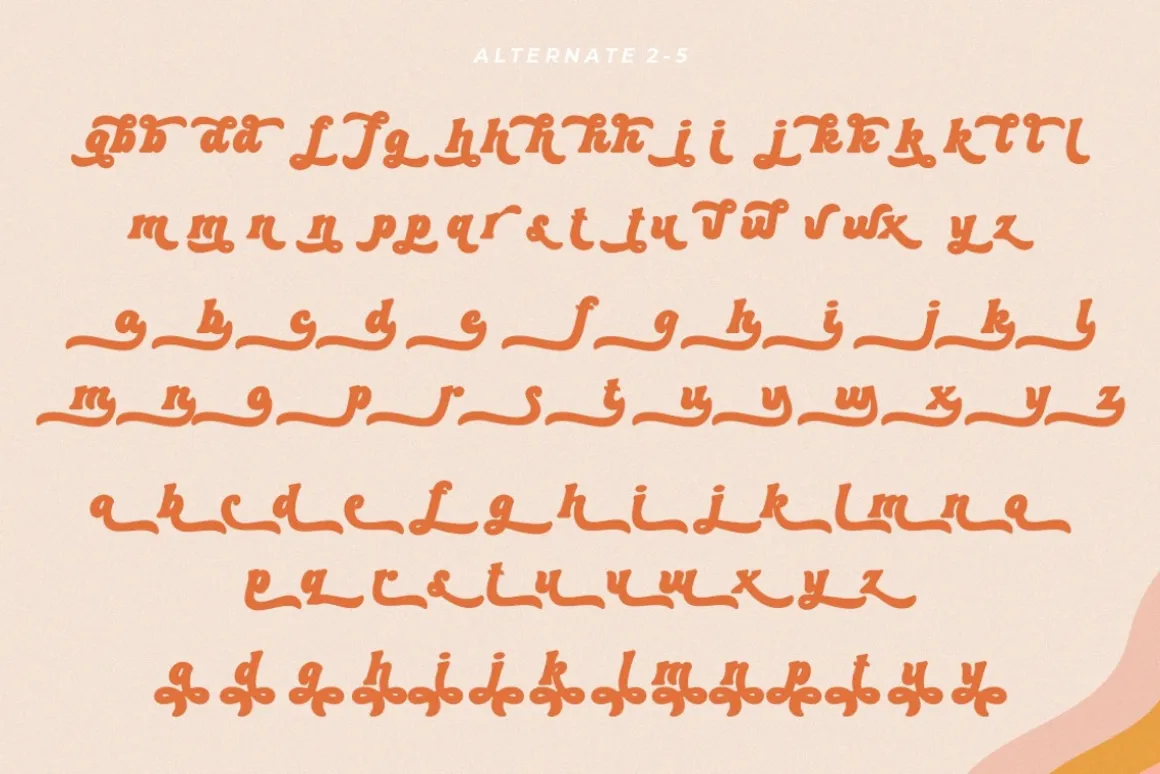 ALTERNATE 2-5
a b b d d f f g h h h h h i i j k k k k l l l
m m n n p p q r s t t u v w v w x y z
a b c d e f g h i j k l
m n o p r s t u v w x y z
a b c d e f g h i j k l m n o
p q r s t u v w x y z
a d g h i j k l m n p t u y